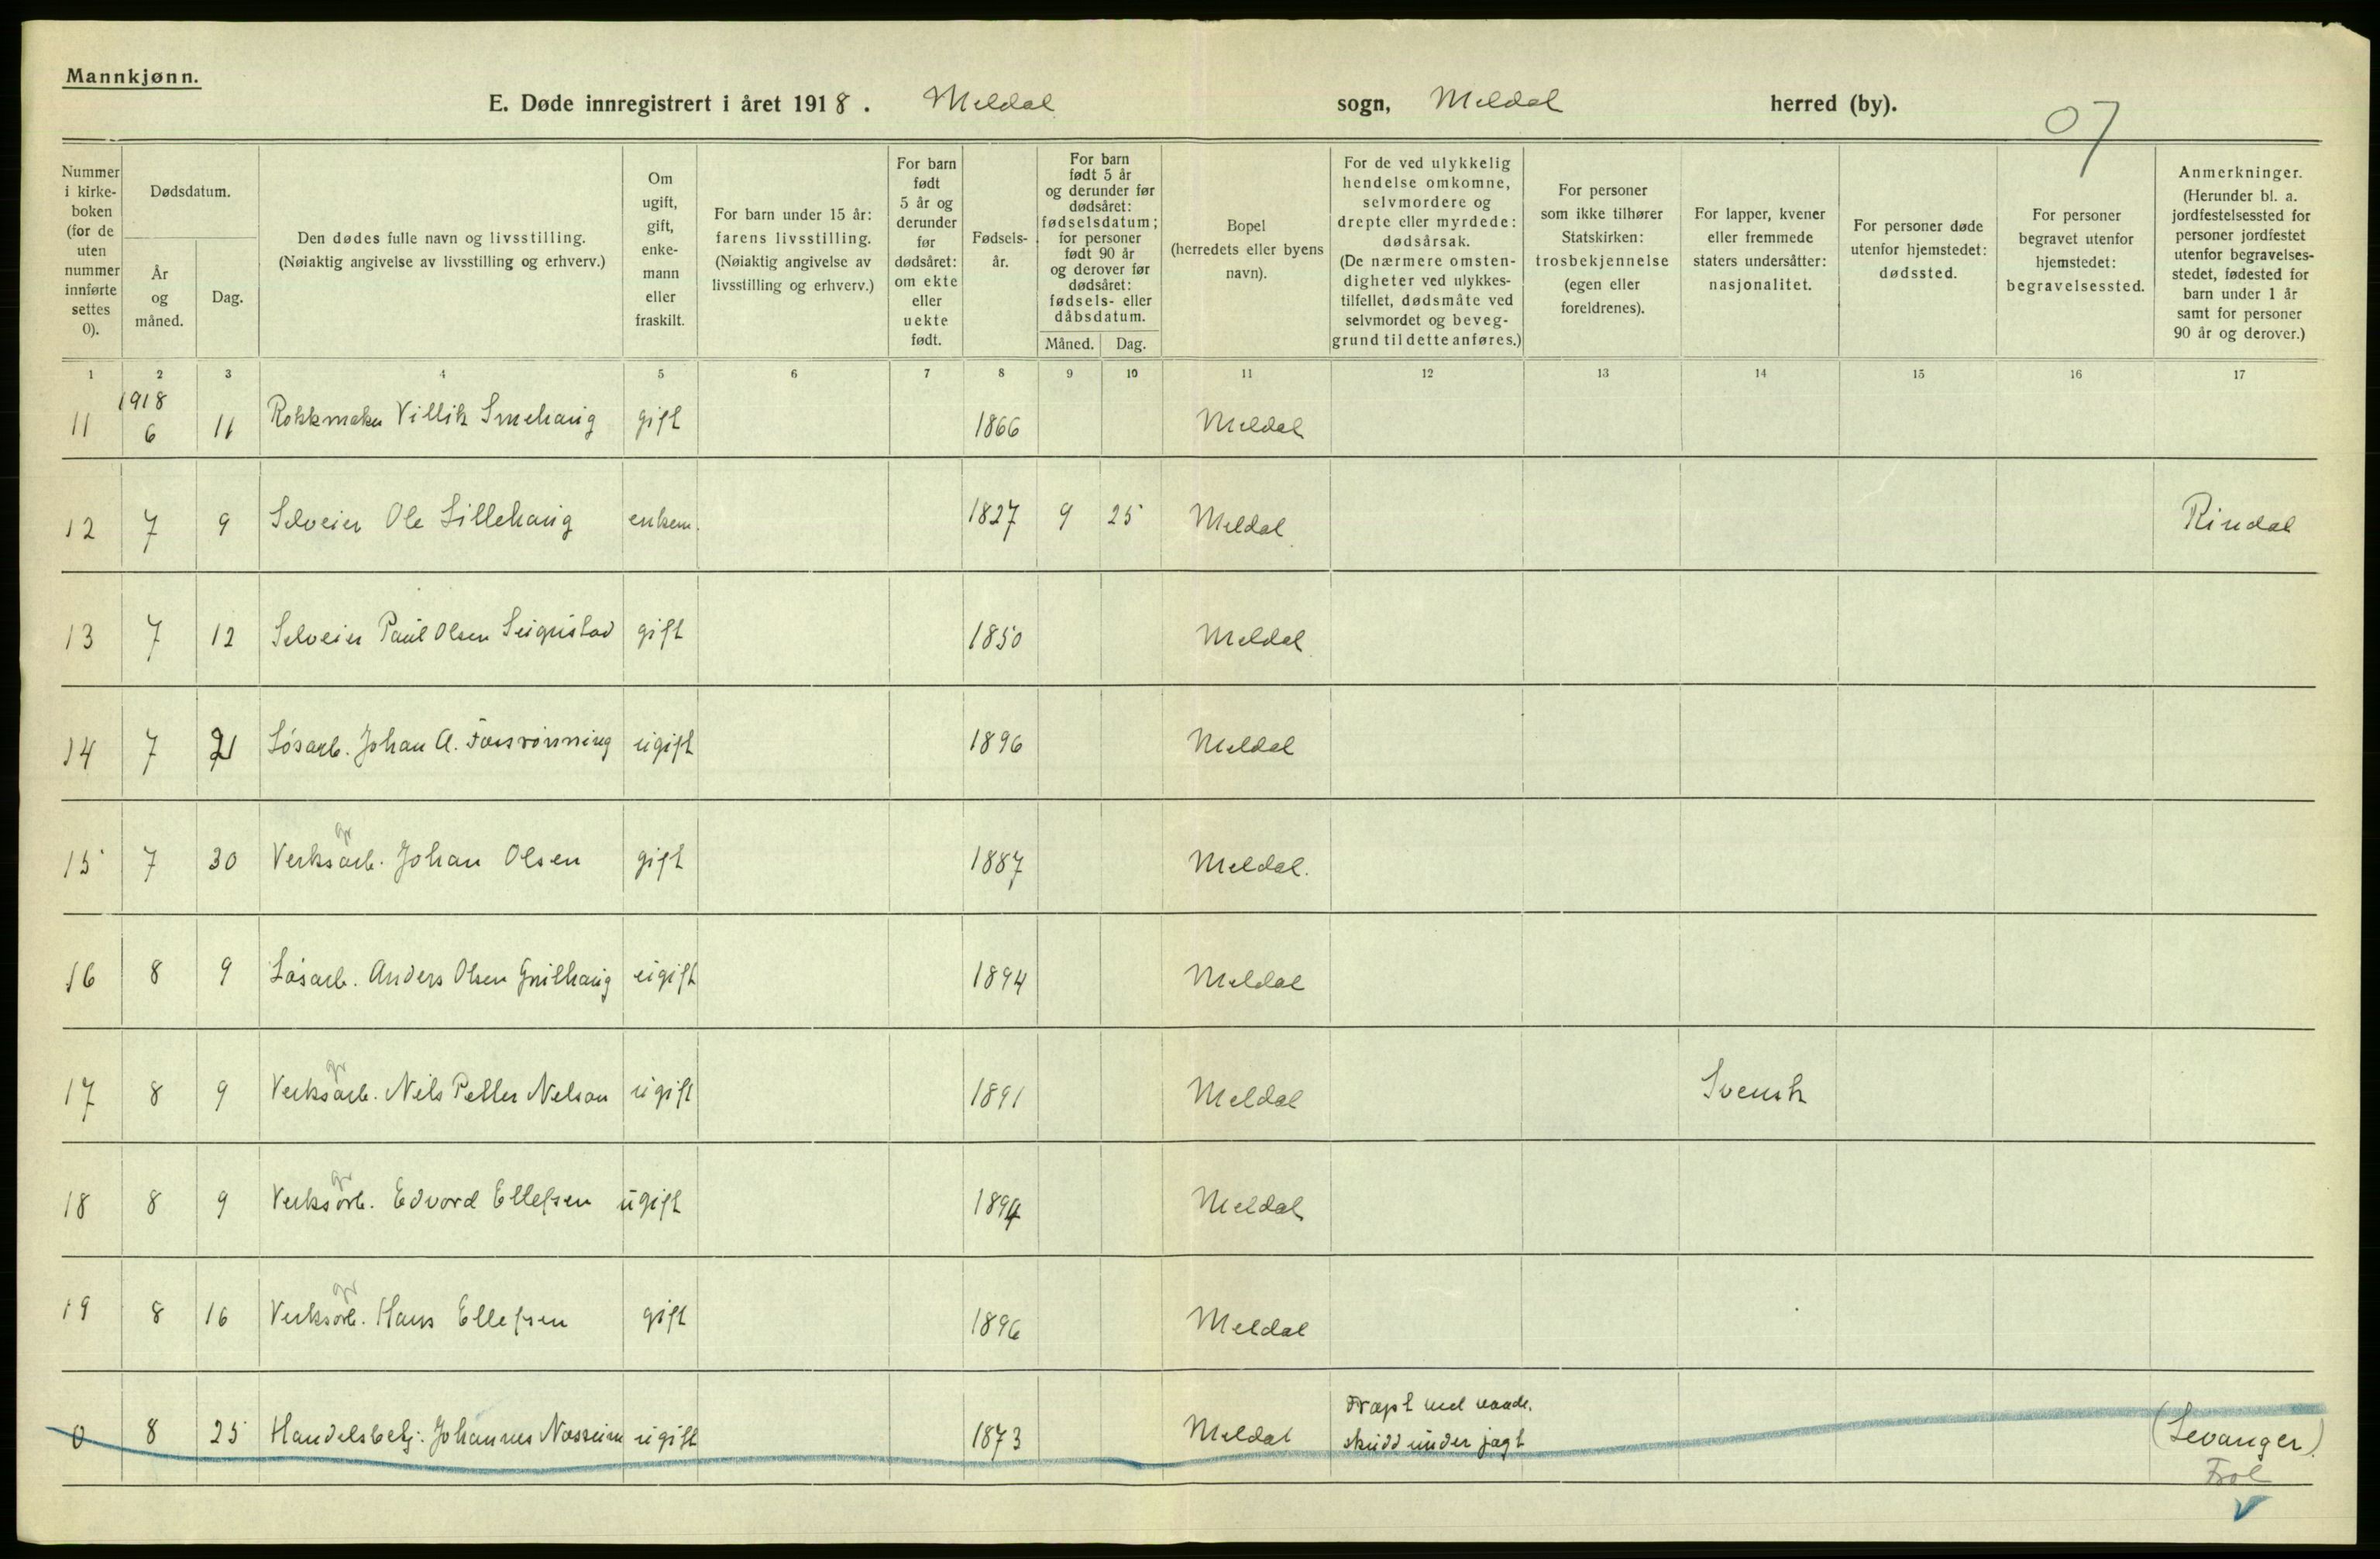 Mannkjønn.
E. Døde innregistrert i året 1918. Meldal sogn, Meldal herred (by).
07
Nummer i kirke-boken (for de uten nummer innførte settes 0).
Dødsdatum.
År og måned.
Dag.
Den dødes fulle navn og livsstilling. (Nøiaktig angivelse av livsstilling og erhverv.)
Om ugift, gift, enke-mann eller fraskilt.
For barn under 15 år: farens livsstilling. (Nøiaktig angivelse av livsstilling og erhverv.)
For barn født 5 år og derunder før dødsåret: om ekte eller uekte født.
Fødsels-år.
For barn født 5 år og derunder før dødsåret: fødselsdatum; for personer født 90 år og derover før dødsåret: fødsels- eller dåbsdatum.
Måned. Dag.
Bopel (herredets eller byens navn).
For de ved ulykkelig hendelse omkomne, selvmordere og drepte eller myrdede: dødsårsak. (De nærmere omsten-digheter ved ulykkes-tilfellet, dødsmåte ved selvmordet og beveg-grund til dette anføres.)
For personer som ikke tilhører Statskirken: trosbekjennelse (egen eller foreldrenes).
For lapper, kvener eller fremmede staters undersåtter: nasjonalitet.
For personer døde utenfor hjemstedet: dødssted.
For personer begravet utenfor hjemstedet: begravelsessted.
Anmerkninger. (Herunder bl. a. jordfestelsessted for personer jordfestet utenfor begravelses-stedet, fødested for barn under 1 år samt for personer 90 år og derover.)
1 2 3 4 5 6 7 8 9 10 11 12 13 14 15 16 17
1918
11 6 11 Rokkmaker Villik Smehaug gift 1866 Meldal
12 7 9 Selveier Ole Lillehaug enkem. 1827 9 25 Meldal Rindal
13 7 12 Selveier Paul Olsen gift 1850 Meldal
14 7 21 Løsarb. Johan A. ugift 1896 Meldal
gr
15 7 30 Verksarb. Johan Olsen gift 1887 Meldal.
16 8 9 Løsarb. Anders Olsen ugift 1894 Meldal
gr
17 8 9 Verksarb. Nils Petter Nelson ugift 1891 Meldal Svensk
gr
18 8 9 Verksarb. Edvard Ellefsen ugift 1894 Meldal
gr
19 8 16 Verksarb. Hans Ellefsen gift 1896 Meldal
0 8 25 Handelsbetj. Johannes ugift 1873 Meldal Dræpt ved vaade. skudd under jagt (Levanger).
Frol